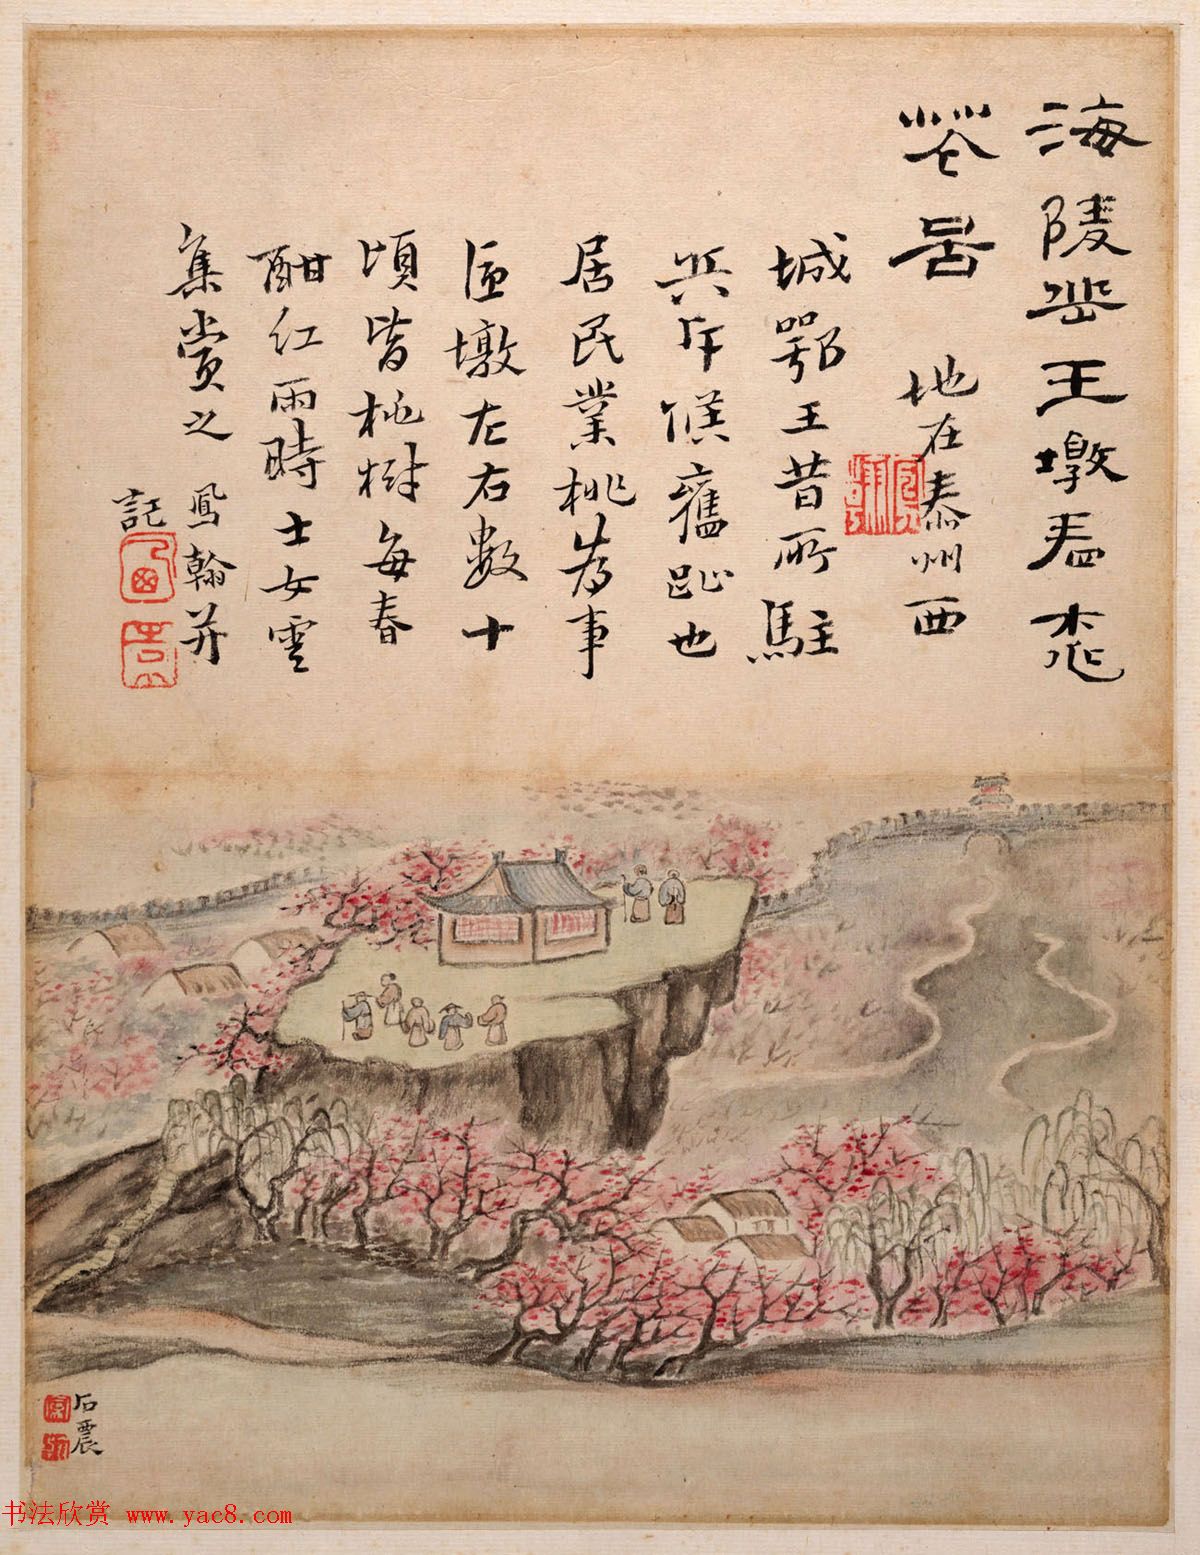 海陵岳王墩看桃
花啚 地在泰州西
城鄂王昔所駐
兵斥候舊趾也
居民業桃為事
墩左右數十
頃皆桃樹每春
酣紅雨時士女雲
集賞之 鳳翰并
記
石震
书法欣赏 www.yac8.com